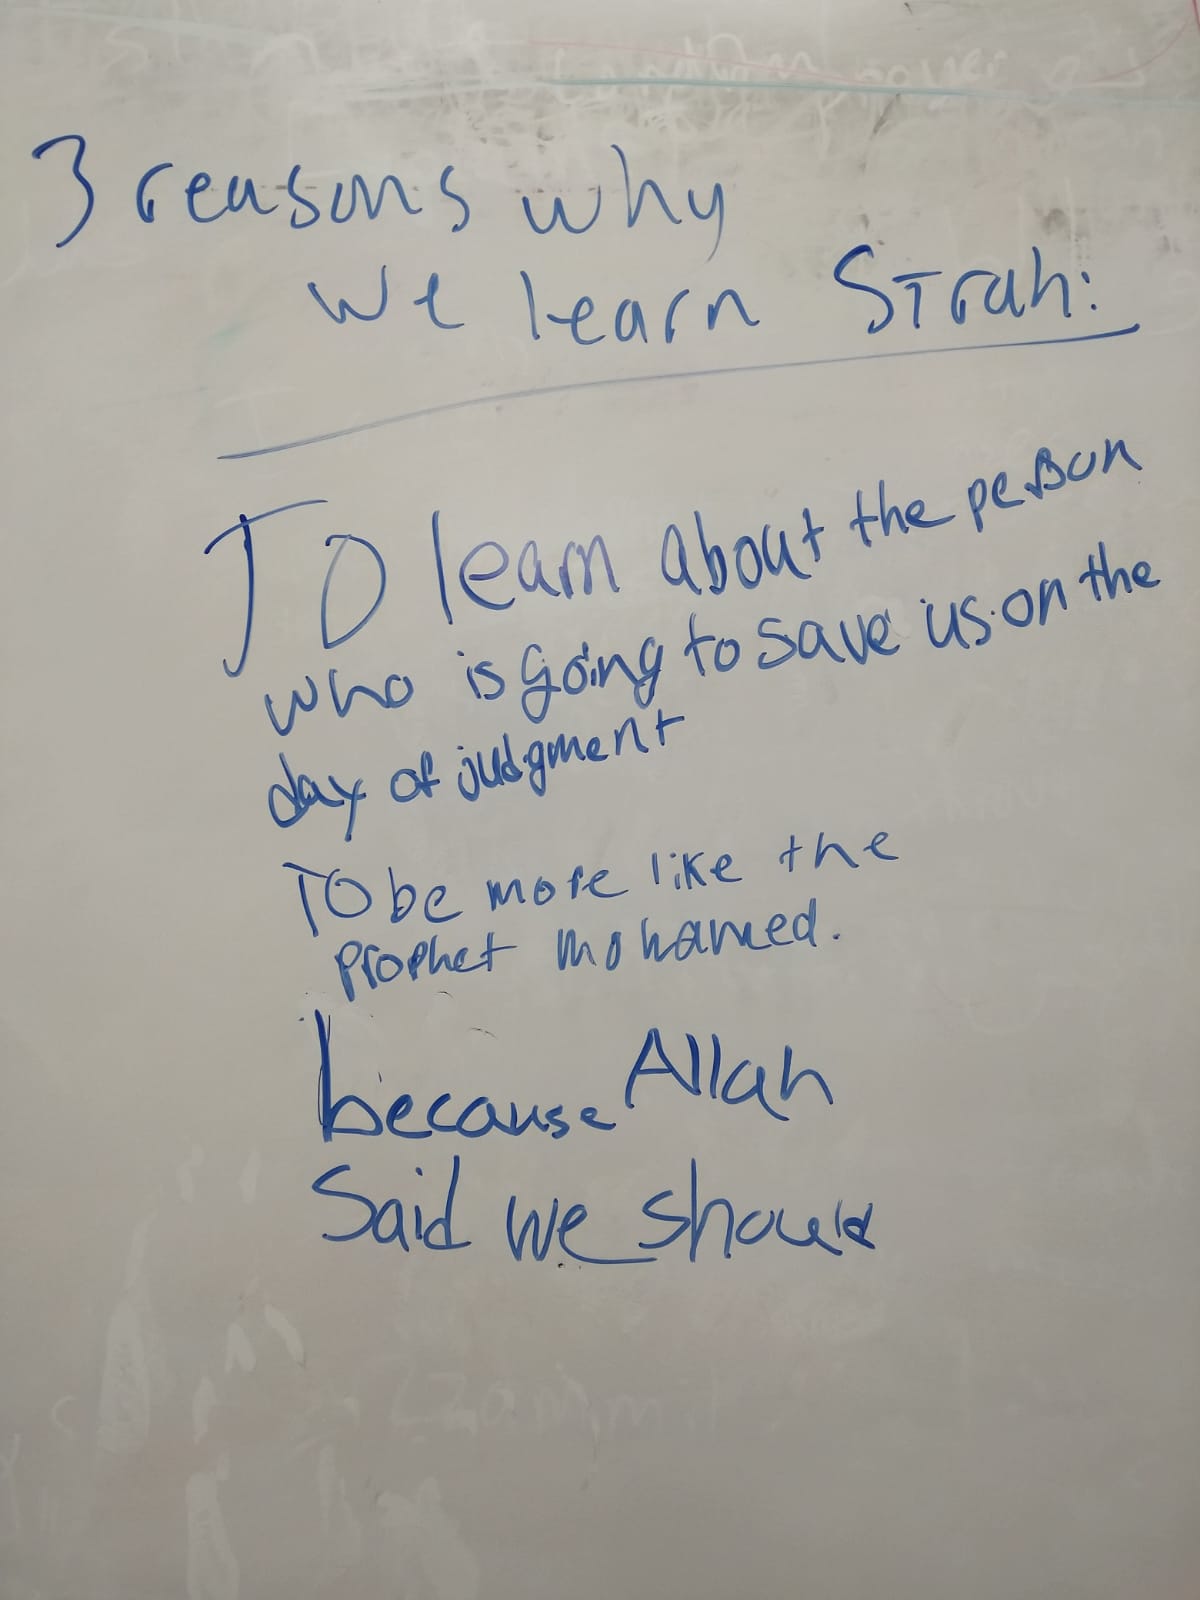 3 reasons why
we learn SIrah:
To learn about the person
who is going to save us on the
day of judgment
TO be more like the
prophet mohamed.
because Allah
Said we should